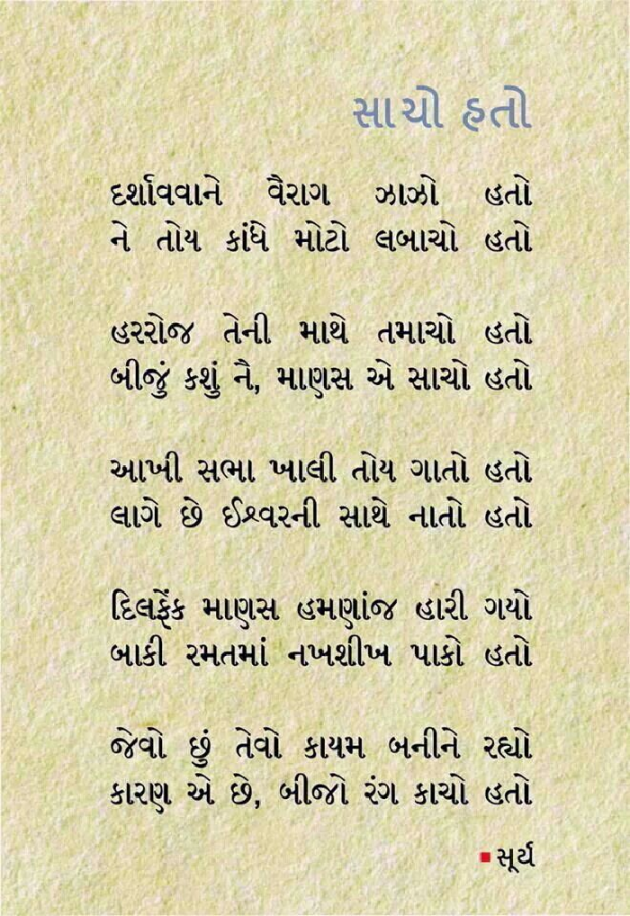 સાચો હતો
દર્શાવવાને વૈરાગ ઝાઝો હતો
ને તોય કાંધે મોટો લબાચો હતો
હરરોજ તેની માથે તમાચો હતો
બીજું કશું નૈ, માણસ એ સાચો હતો
આખી સભા ખાલી તોય ગાતો હતો
લાગે છે ઈશ્વરની સાથે નાતો હતો
દિલફેંક માણસ હમણાંજ હારી ગયો
બાકી રમતમાં નખશીખ પાકો હતો
જેવો છું તેવો કાયમ બનીને રહ્યો
કારણ એ છે, બીજો રંગ કાચો હતો
સૂર્ય